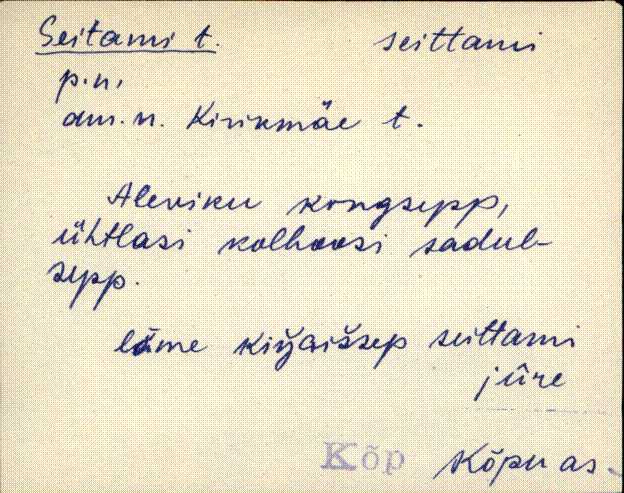 Seitami t. seittami
p.n.
am.n. Kirikmäe t.
Aleviku kongsepp,
ühtlasi kolhoosi sadul-
sepp.
läme seittami
jûre
Kõp Kõpu as